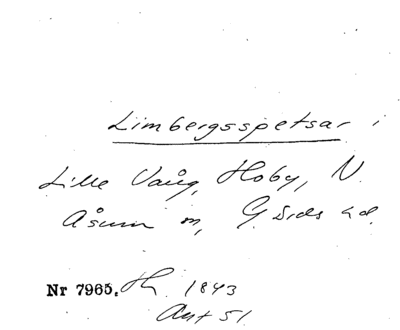 Limbergsspetsar i
Lille Vång, Hoby, N.
Åsum sn, G Srds hd.
Nr 7965. Th. 1843
Art 51.